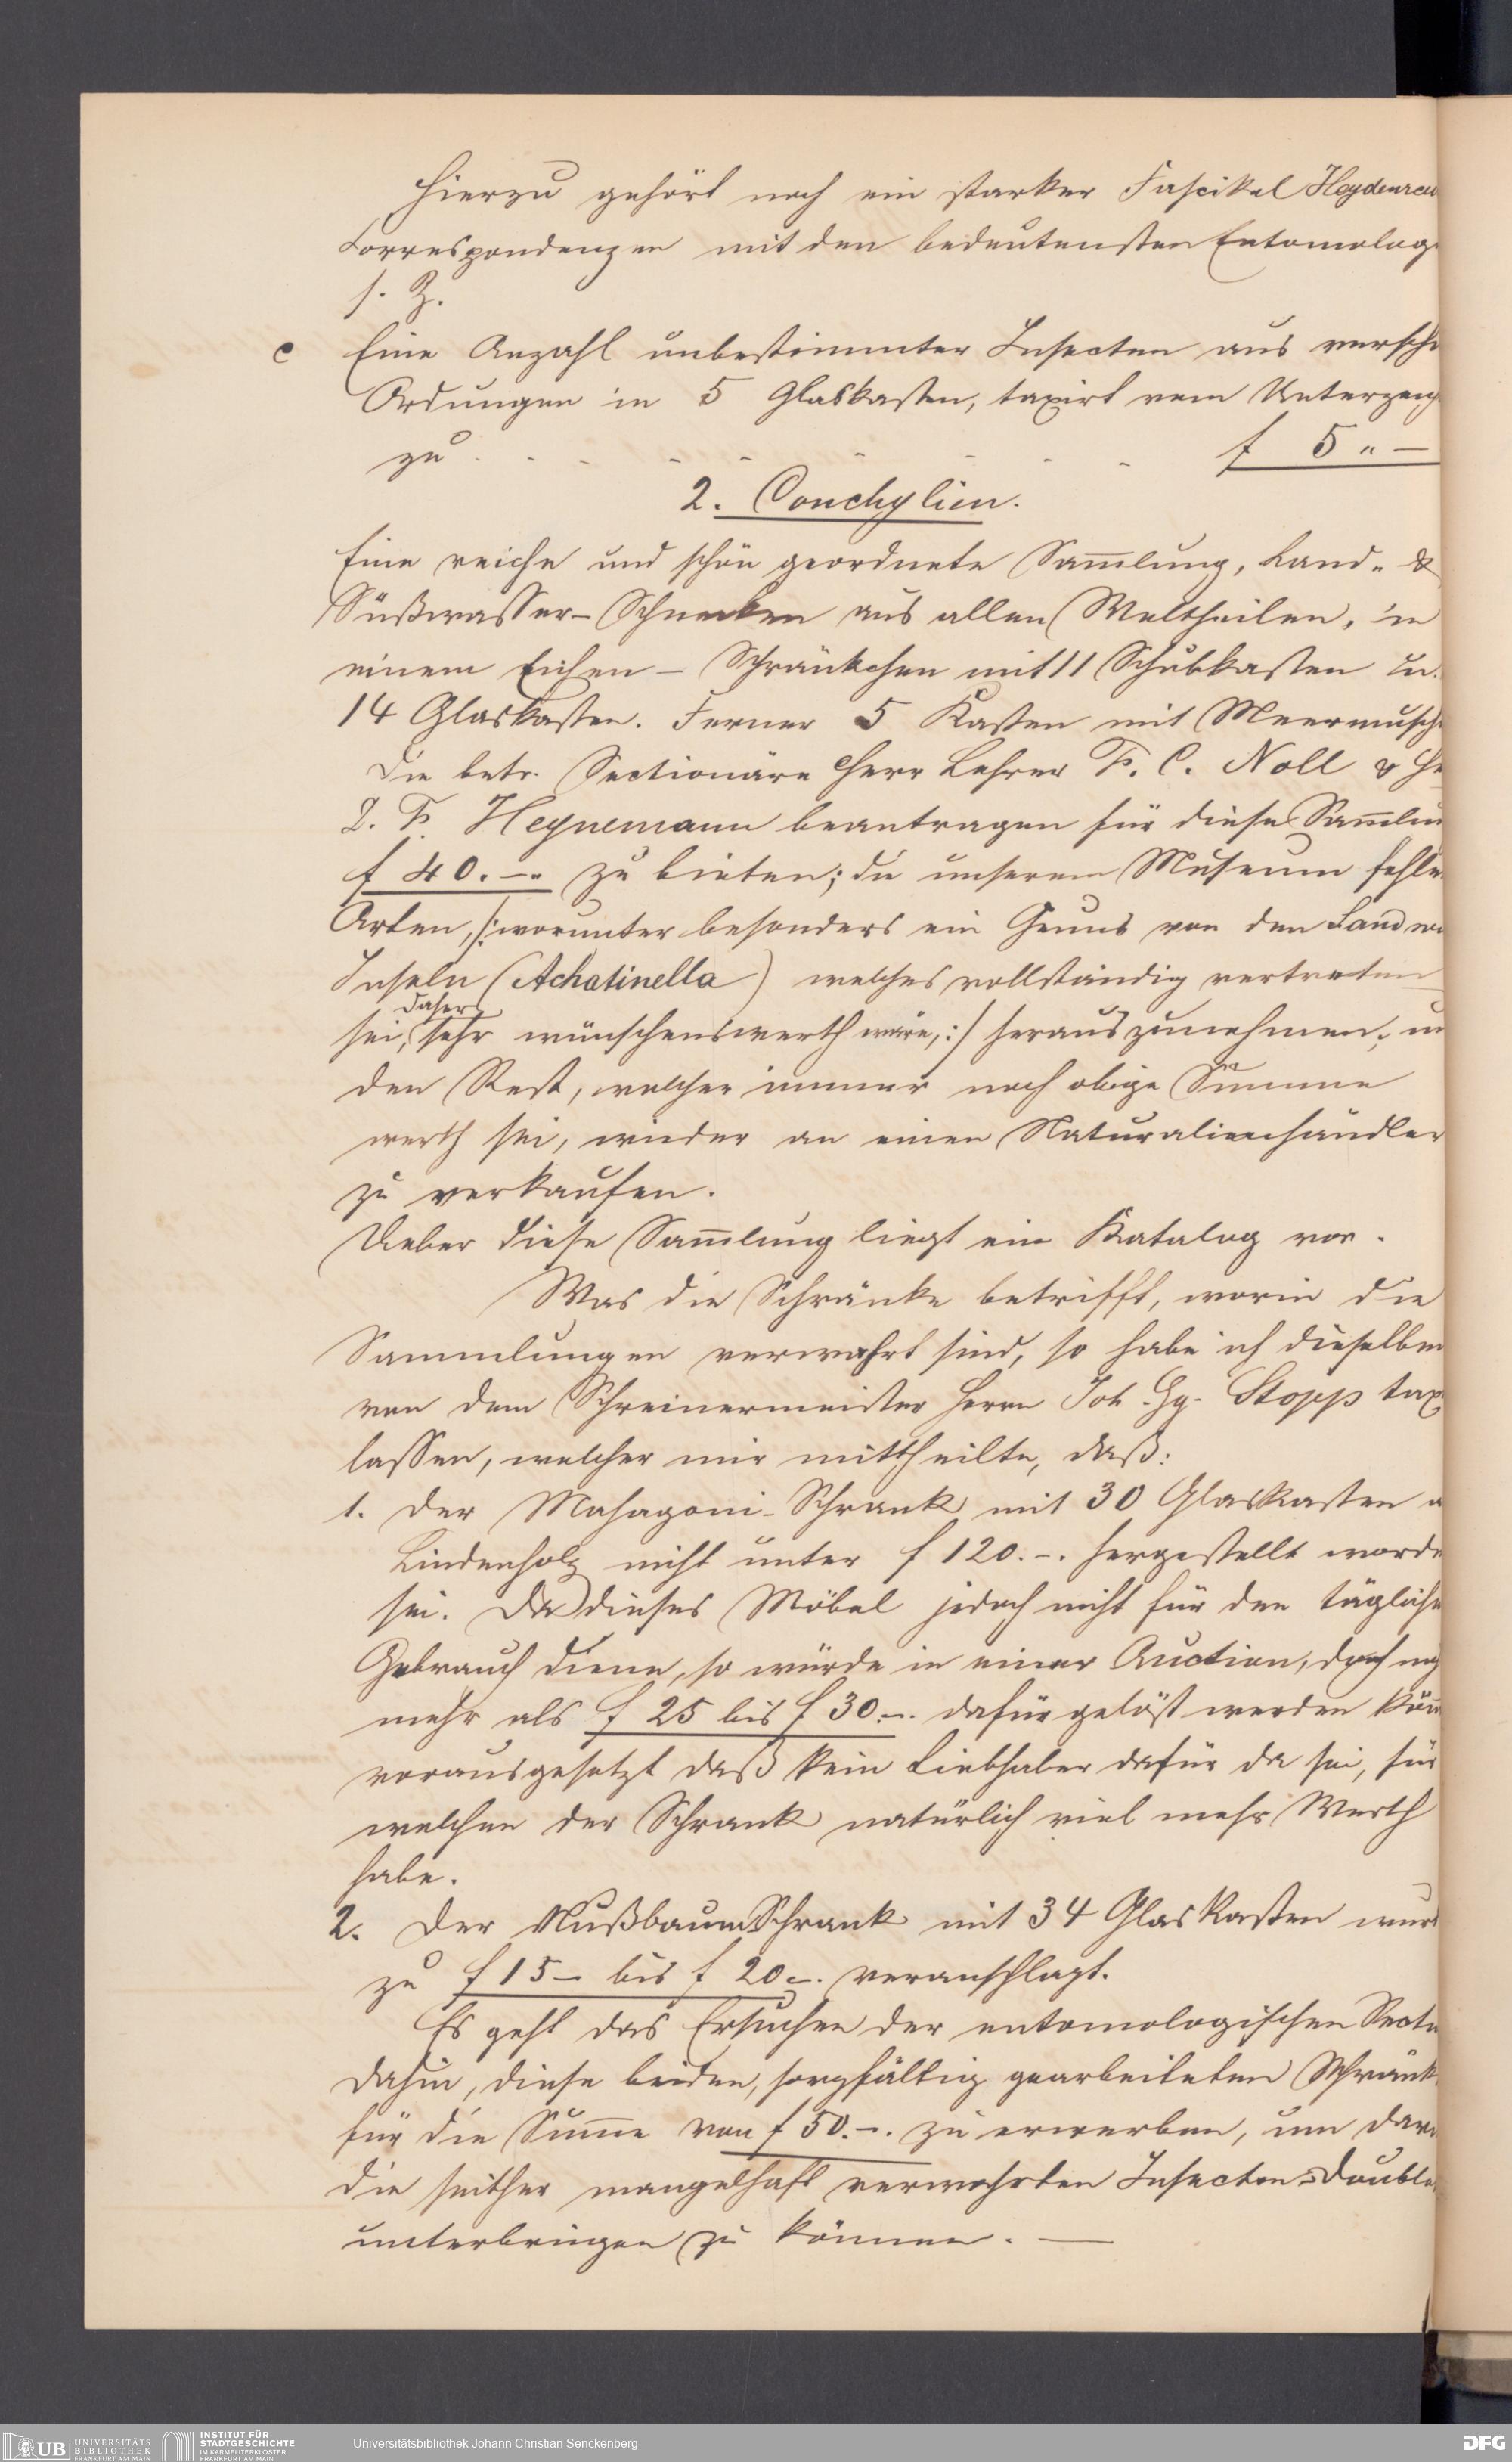 Hierzu gehört noch ein starker Fascikel Heydenrei
Correspondenzen mit den bedeutensten Entomolog
s. Z.
c Eine Anzahl unbestimmter Insecten aus versch
Ordungen in 5 Glaskasten, taxirt vom Unterzeich
zu . . . . . . . . . f 5 " —
2. Conchylien.
Eine reiche und schön geordnete Sam̄lung, Land- &
Süßwasser-Schnecken aus allen Weltheilen, in
einem Eichen-Schränkchen mit 11 Schubkasten u.
14 Glaskasten. Ferner 5 Kasten mit Meermusch
Die betr. Sectionäre Herr Lehrer F. C. Noll & He
D. F. Heynemann beantragen für diese Sam̄lun
f 40.–. zu bieten; die unserem Museum fehle
Arten, /: worunter besonders ein Genus von den Sandw
Inseln (Achatinella) welches vollständig vertreten
daher
sei, sehr wünschenswerth wäre, :/ herauszunehmen, u
den Rest, welcher immer noch obige Summe
werth sei, wieder an einen Naturalienhändler
zu verkaufen.
Ueber diese Sam̄lung liegt ein Katalog vor.
Was die Schränke betrifft, worin die
Sammlungen verwahrt sind, so habe ich dieselben
von dem Schreinermeister Herrn Joh. Gg. Stopp tax
lassen, welcher mir mittheilte, daß:
1. der Mahagoni-Schrank mit 30 Glaskasten a
Lindenholz nicht unter f 120.–. hergestellt worde
sei. Da dieses Möbel jedoch nicht für den tägliche
Gebrauch diene, so würde in einer Auction, doch nich
mehr als f 25 bis f 30.–. dafür gelöst werden kön̄
vorausgesetzt daß kein Liebhaber dafür da sei, für
welchen der Schrank natürlich viel mehr Werth
habe.
2. Der Nußbaum Schrank mit 34 Glaskasten wurd
zu f 15– bis f 20.–. veranschlagt.
Es geht das Ersuchen der entomologischen Secti
dahin, diese beiden, sorgfältig gearbeiteten Schränk
für die Sum̄e von f 50.–. zu erwerben, um dari
die seither mangelhaft verwahrten Insecten-Double
unterbringen zu können. —
UB UNIVERSITÄTS
BIBLIOTHEK
FRANKFURT AM MAIN
INSTITUT FÜR
STADTGESCHICHTE
IM KARMELITERKLOSTER
FRANKFURT AM MAIN
Universitätsbibliothek Johann Christian Senckenberg
DFG